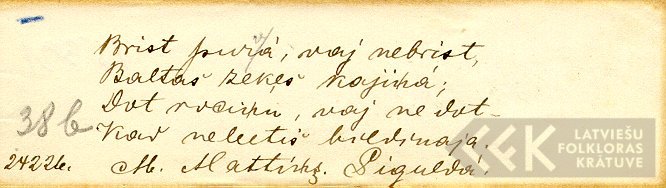 Brist purvá, vaj nebrist,
Baltas zeķes kajiņá;
Dot rociņu, vaj ne dot-
38b
Kad neleetis bildinaja.
24226. M. Mattíņß. Siguldá.
LATVIEŠU
FOLKLORAS
KRĀTUVE